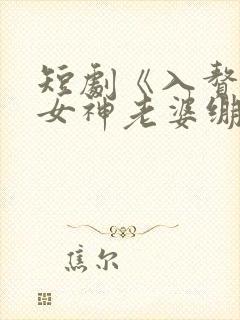 短劇《入贅
女神老婆繃
焦尔